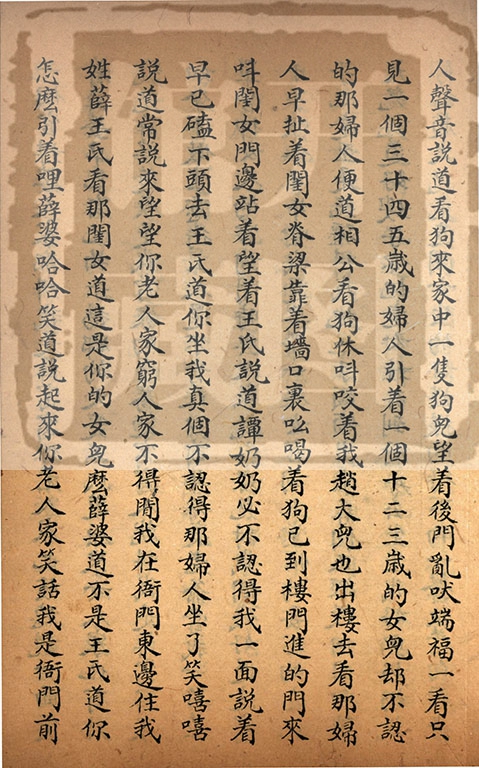 人聲音說道看狗來家中一隻狗兒望着後門亂吠端福一看只
見一個三十四五歲的婦人引着一個十二三歲的女兒却不認
的那婦人便道相公看狗休呌咬着我趙大兒也出樓去看那婦
人早扯着閨女脊梁靠着墻口裏吆喝着狗已到樓門進的門來
呌閨女門邊站着望着王氏說道譚奶奶必不認得我一面說着
早已磕下頭去王氏道你坐我真個不認得那婦人坐了笑嘻嘻
說道常說來望望你老人家窮人家不得閒我在衙門東邊住我
姓薛王氏看那閨女道這是你的女兒麽薛婆道不是王氏道你
怎麽引着哩薛婆哈哈笑道說起來你老人家笑話我是衙門前